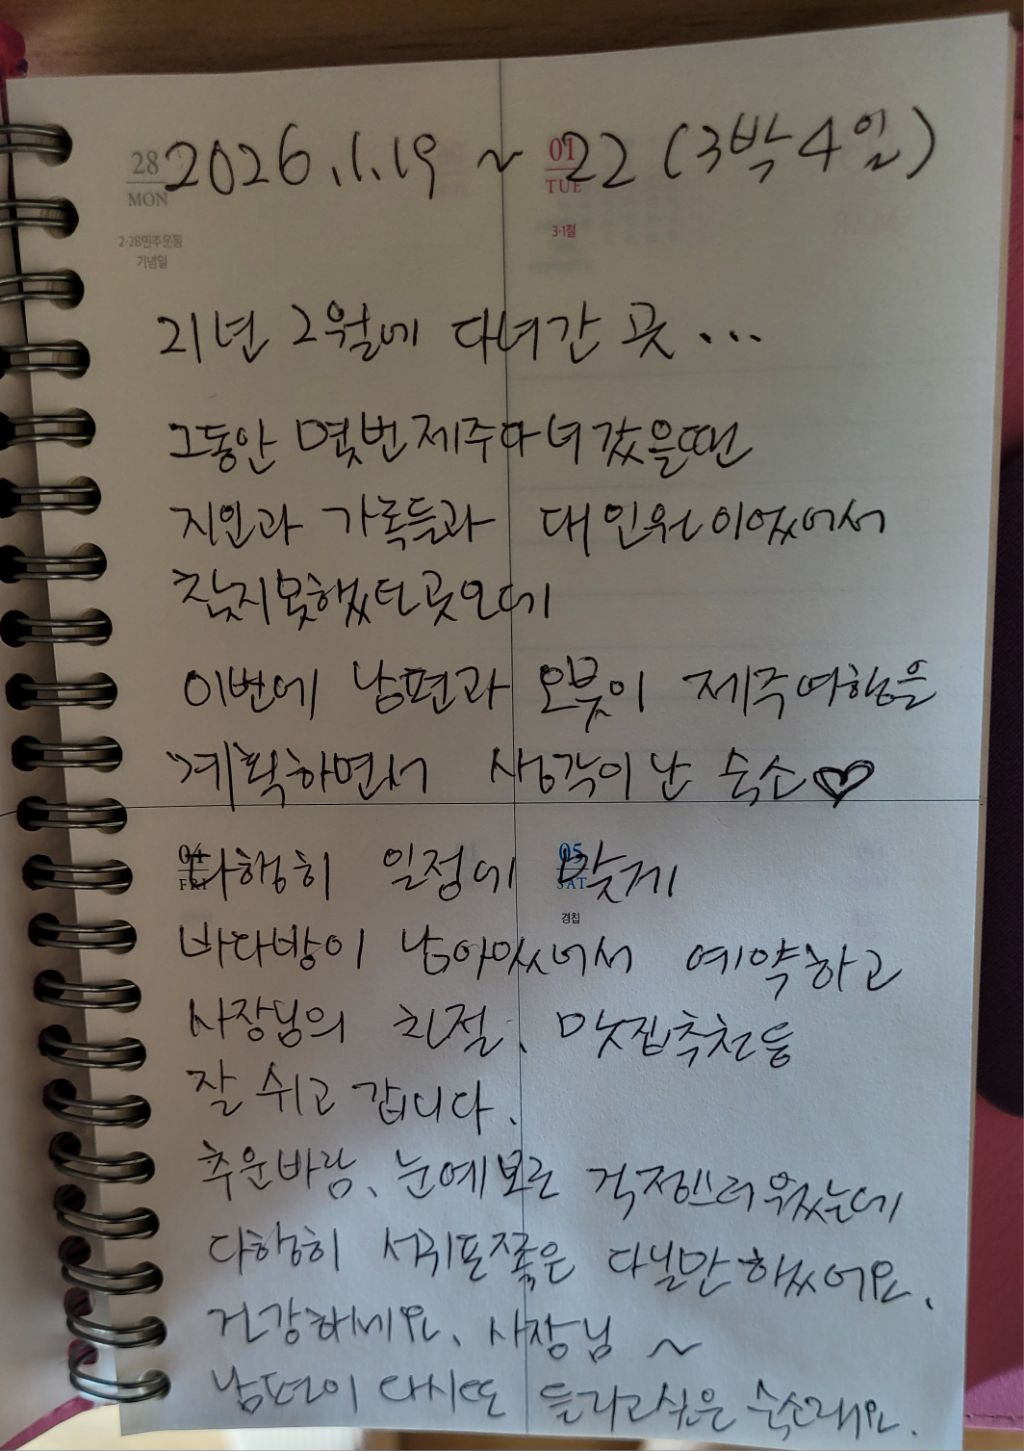 2026.1.19 ~ 22 (3박4일)
28
MON
2·28민주운동
기념일
01
TUE
3·1절
21년 2월에 다녀간 곳...
그동안 몇번 제주다녀갔을땐
지인과 가족들과 대인원이었어서
찾지못했던곳인데
이번에 남편과 오붓이 제주여행을
계획하면서 생각이난 숙소♡
04
FRI
05
SAT
경칩
다행히 일정에 맞게
바다방이 남아있어서 예약하고
사장님의 친절, 맛집추천등
잘 쉬고 갑니다.
추운바람, 눈예보로 걱정스러웠는데
다행히 서귀포쪽은 다닐만 하였어요.
건강하세요, 사장님 ~
남편이 다시또 들리고싶은 숙소래요.